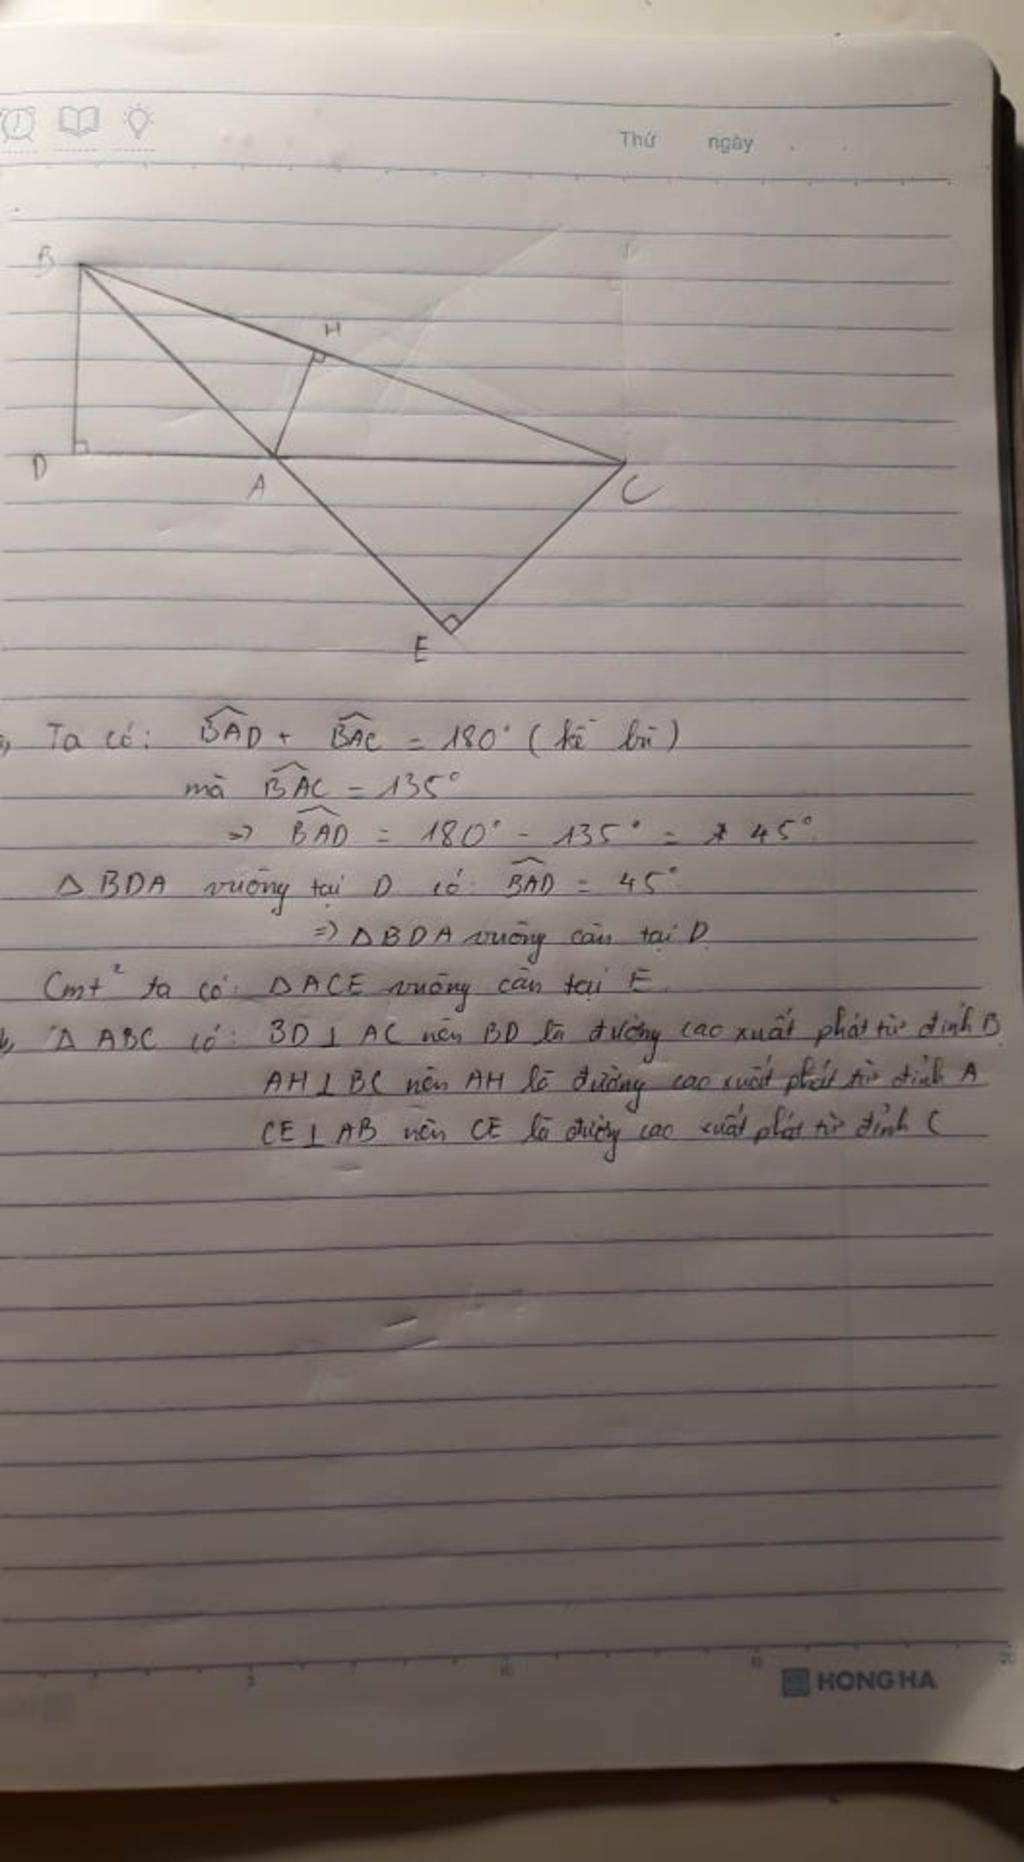 Thứ ngày
B
H
D
A
C
E
Ta có: BAD + BAC = 180° (kề bù)
mà BAC = 135°
=> BAD = 180° - 135° = 45°
△ BDA vuông tại D có BAD = 45°
=> △BDA vuông cân tại D
Cmt² ta có: △ACE vuông cân tại E
b, △ ABC có: BD ⊥ AC nên BD là đường cao xuất phát từ đỉnh B
AH ⊥ BC nên AH là đường cao xuất phát từ đỉnh A
CE ⊥ AB nên CE là đường cao xuất phát từ đỉnh C
5 10 15 20
HONG HA